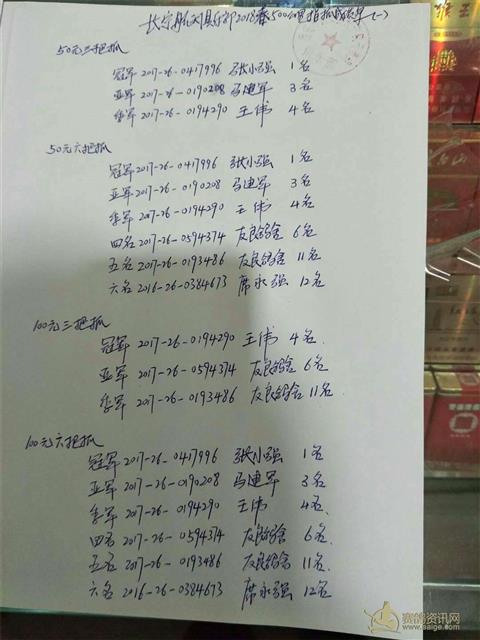 长宁航翔俱乐部2018春500公里指抓成绩单(一)
50元三把抓
冠军 2017-26-0417996 张小强 1名
亚军 2017-26-0190208 马迪军 3名
季军 2017-26-0194290 王伟 4名
50元六把抓
冠军 2017-26-0417996 张小强 1名
亚军 2017-26-0190208 马迪军 3名
季军 2017-26-0194290 王伟 4名
四名 2017-26-0594374 友良鸽舍 6名
五名 2017-26-0193486 友良鸽舍 11名
六名 2016-26-0384673 席永强 12名
100元三把抓
冠军 2017-26-0194290 王伟 4名.
亚军 2017-26-0594374 友良鸽舍 6名
季军 2017-26-0193486 友良鸽舍 11名.
100元六把抓
冠军 2017-26-0417996 张小强 1名
亚军 2017-26-0190208 马迪军 3名
季军 2017-26-0194290 王伟 4名.
四名 2017-26-0594374 友良鸽舍 6名.
五名 2017-26-0193486 友良鸽舍 11名.
六名 2016-26-0384673 席永强 12名
赛鸽资讯网
www.saige.com